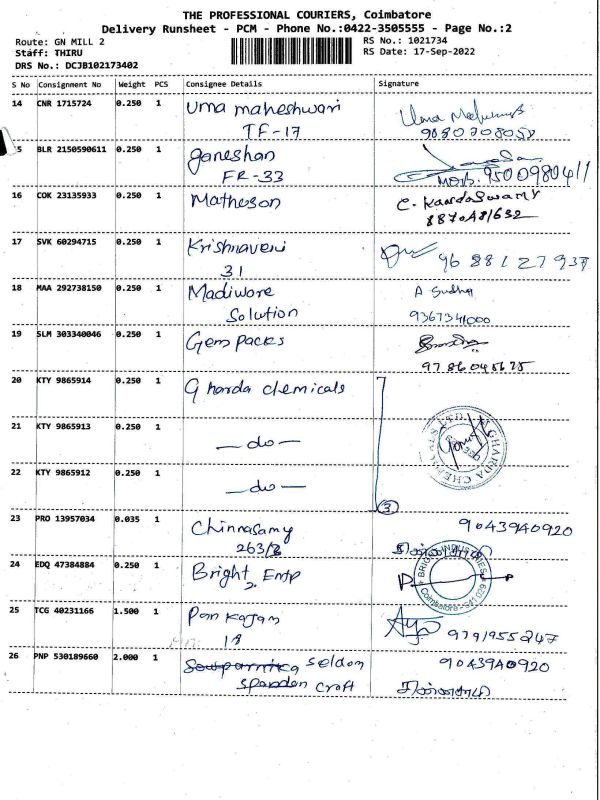 THE PROFESSIONAL COURIERS, Coimbatore
Delivery Runsheet - PCM - Phone No.:0422-3505555 - Page No.:2
Route: GN MILL 2
Staff: THIRU
DRS No.: DCJB102173402
RS No.: 1021734
RS Date: 17-Sep-2022
S No Consignment No Weight PCS Consignee Details Signature
14 CNR 1715724 0.250 1 Uma maheshwari
TF-17
9080708058
5 BLR 2150590611 0.250 1 ganeshan
FR-33
Mob. 9500980411
16 COK 23135933 0.250 1 Matheson C. Kandaswamy
8870481632
17 SVK 60294715 0.250 1 Krishnaveni
31 9688127937
18 MAA 292738150 0.250 1 Madiwore A Sudha
Solution 9367341000
19 SLM 303340046 0.250 1 Gem packs
9786045675
20 KTY 9865914 0.250 1 Gharda chemicals
21 KTY 9865913 0.250 1 -do-
GHARDA CHEMICALS LTD
22 KTY 9865912 0.250 1 -do-
3
23 PRO 13957034 0.035 1 Chinnasamy 9043940920
263/B சின்னசாமி
24 EDQ 47384884 0.250 1 Bright Entp
BRIGHT INDUSTRIES
Coimbatore - 641 029
25 TCG 40231166 1.500 1 Pankajam
18 9791955247
26 PNP 530189660 2.000 1 Sowparnika Seldom 9043940920
Spanden Croft சின்னசாமி